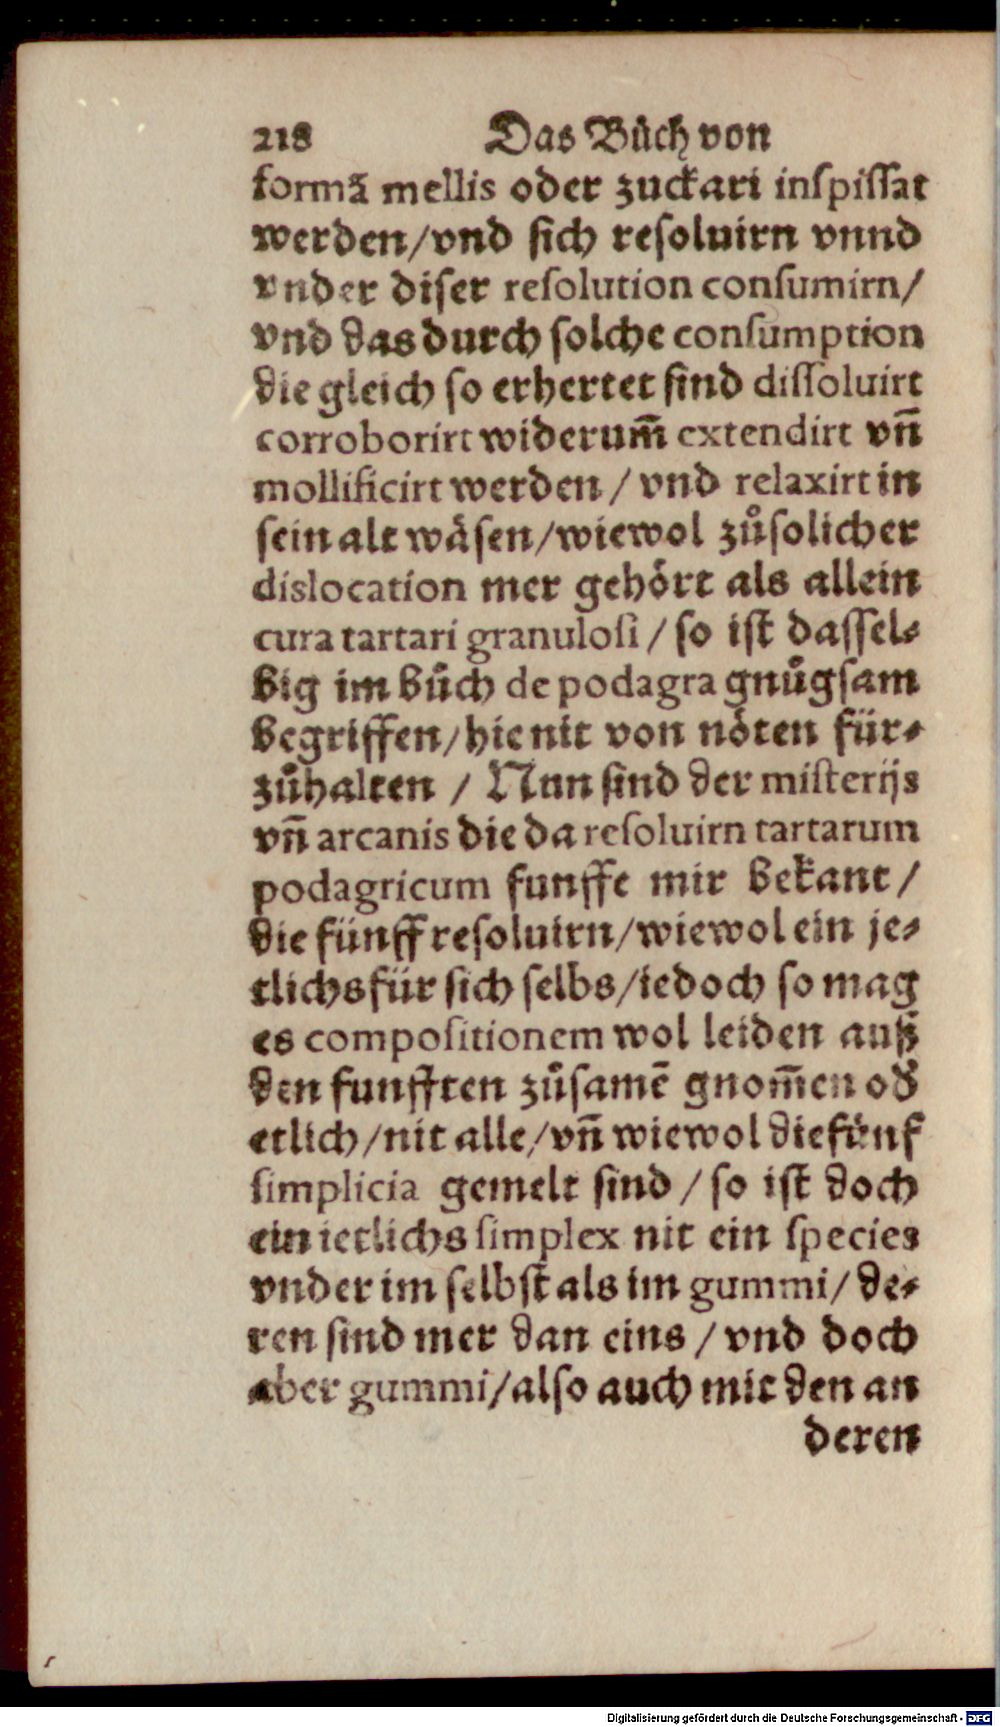 218 Das Bůch von
formã mellis oder zuckari inspissat
werden/vnd sich resoluirn vnnd
vnder diser resolution consumirn/
vnd das durch solche consumption
die gleich so erhertet sind dissoluirt
corroborirt widerum̃ extendirt vñ
mollificirt werden / vnd relaxirt in
sein alt wåsen/wiewol zůsolicher
dislocation mer gehört als allein
cura tartari granulosi / so ist dassel⸗
big im bůch de podagra gnůgsam
begriffen/hie nit von nöten für⸗
zůhalten / Nun sind der misterijs
vñ arcanis die da resoluirn tartarum
podagricum funffe mir bekant /
die fünff resoluirn/wiewol ein je⸗
tlichs für sich selbs/iedoch so mag
es compositionem wol leiden auß
den funfften zůsamẽ gnom̃en od
etlich/nit alle/vñ wiewol die fünf
simplicia gemelt sind / so ist doch
ein ietlichs simplex nit ein species
vnder im selbst als im gummi/ de⸗
ren sind mer dan eins / vnd doch
aber gummi/also auch mit den an
deren
Digitalisierung gefördert durch die Deutsche Forschungsgemeinschaft - DFG